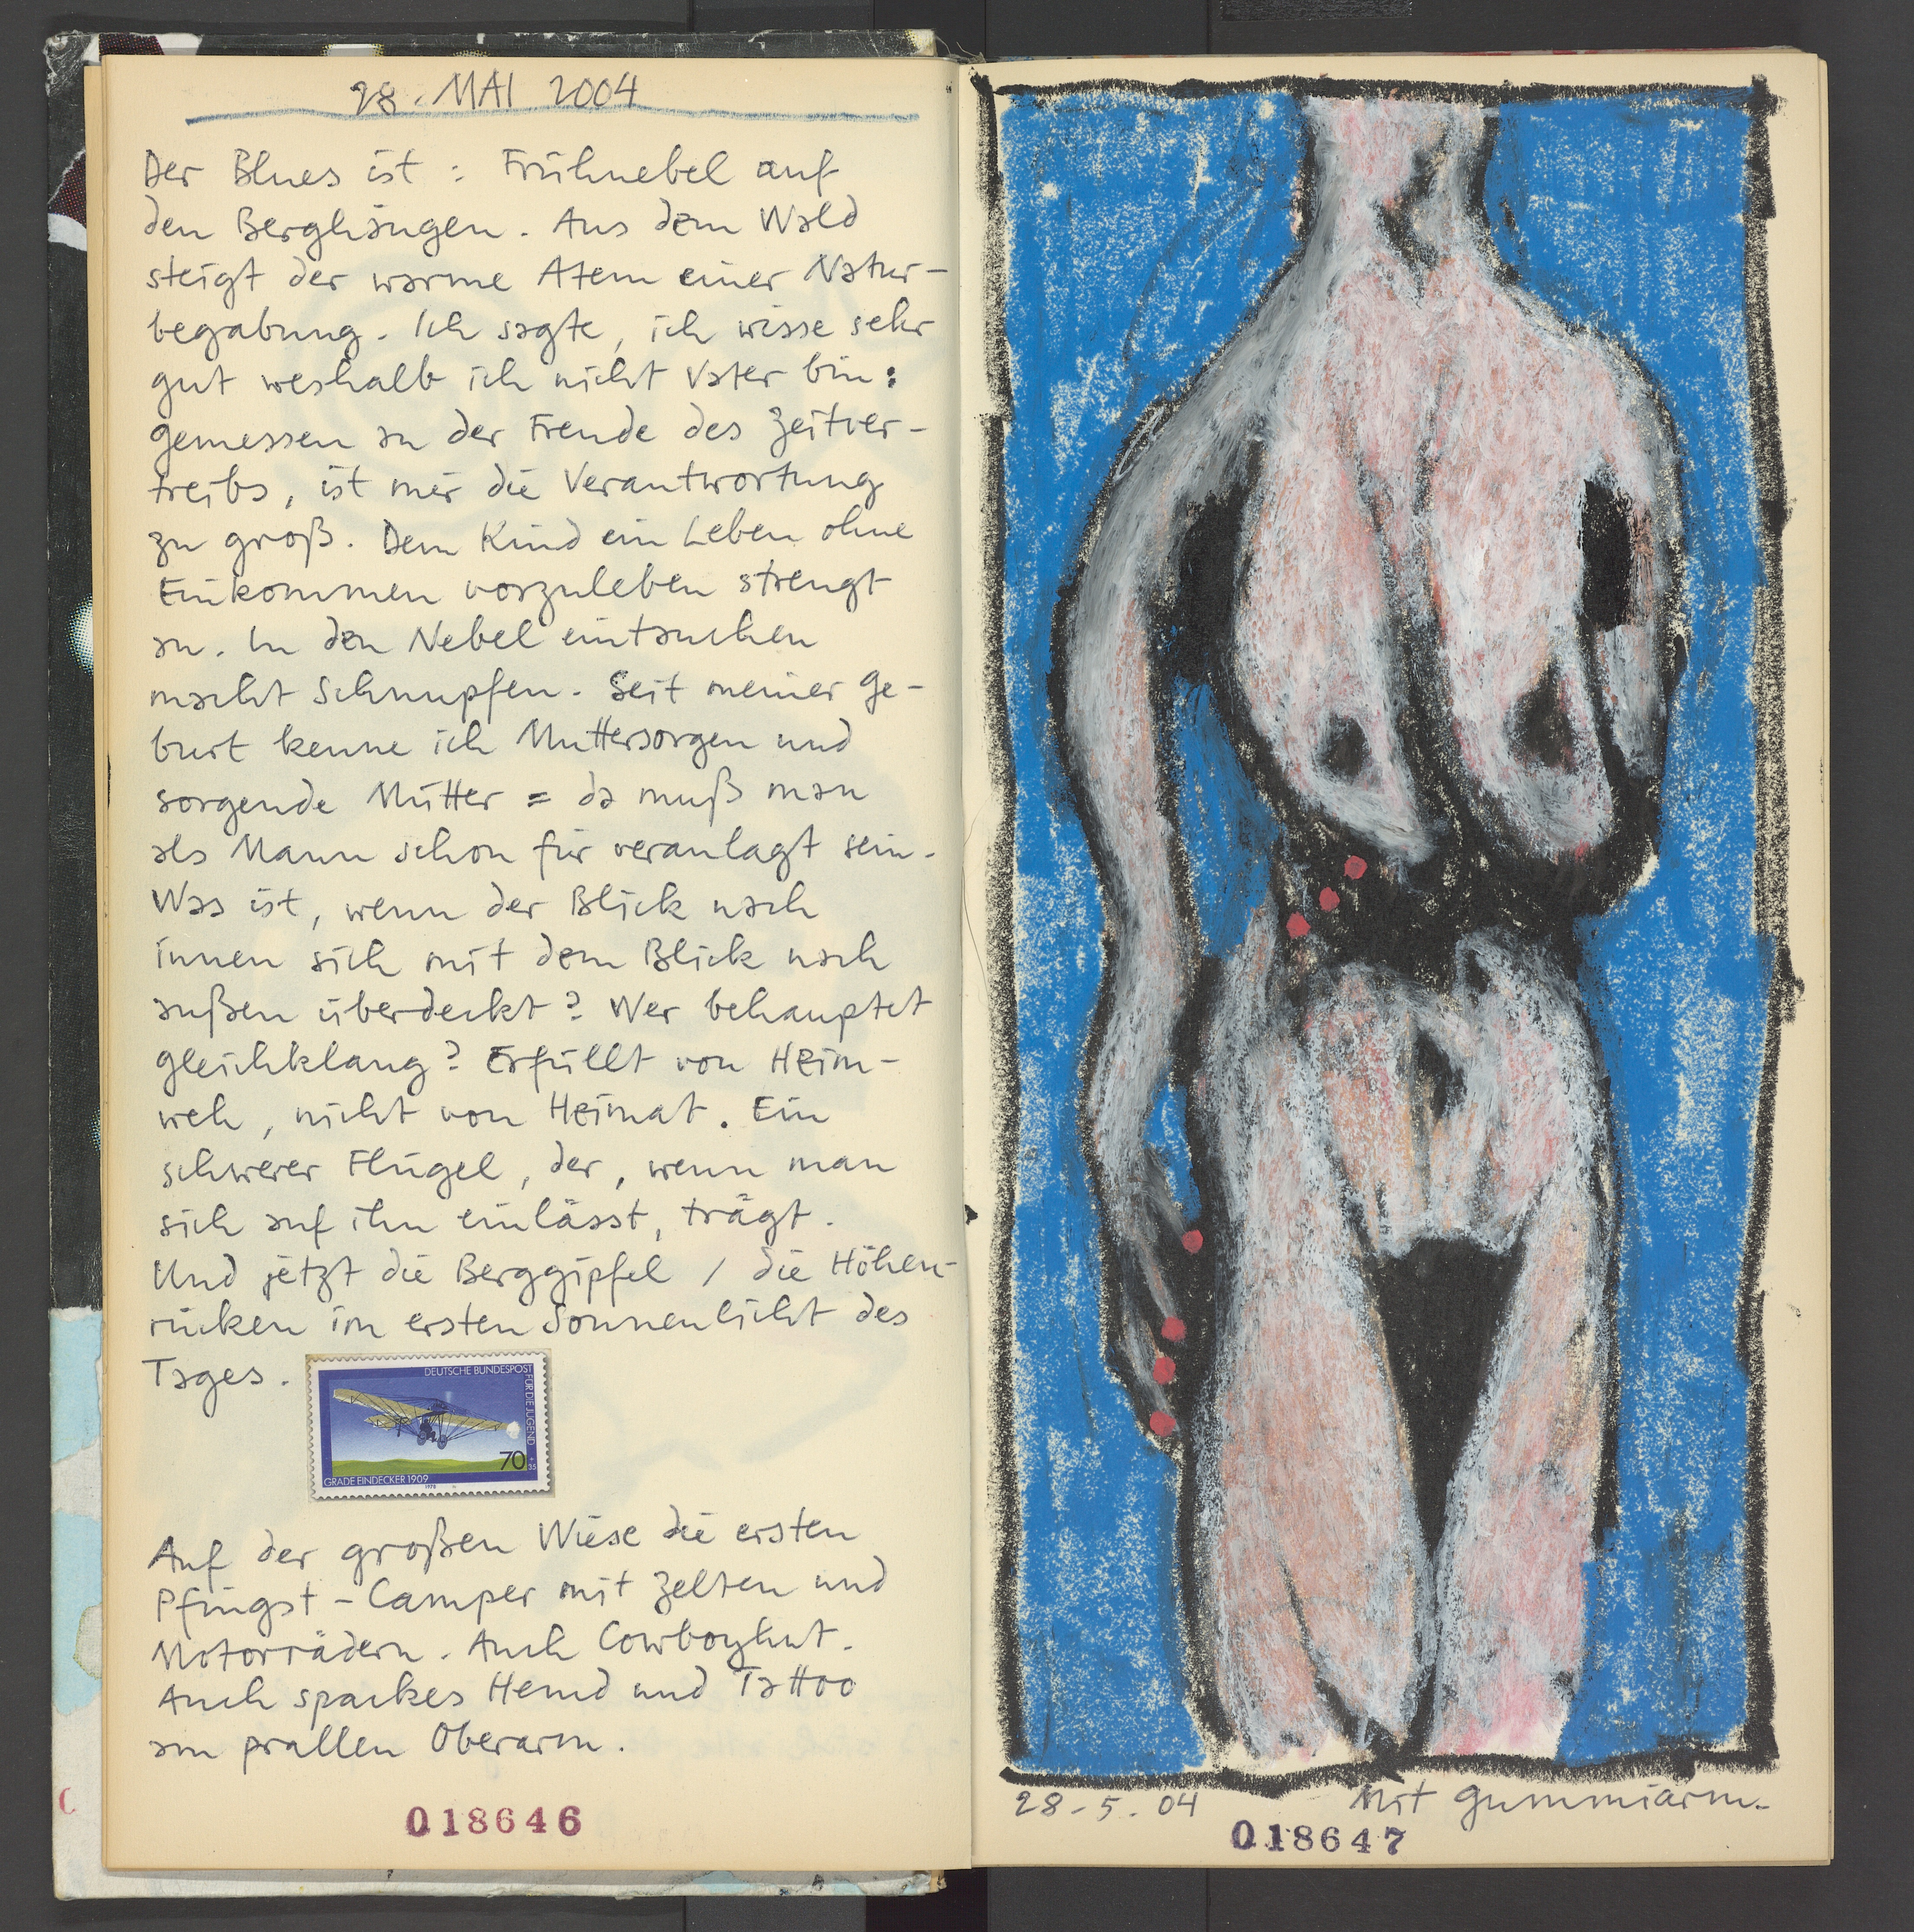 28. MAI 2004
Der Blues ist : Frühnebel auf
den Berghängen. Aus dem Wald
steigt der warme Atem einer Natur-
begabung. Ich sagte, ich wisse sehr
gut weshalb ich nicht Vater bin:
gemessen an der Freude des Zeitver-
treibs, ist mir die Verantwortung
zu groß. Dem Kind ein Leben ohne
Einkommen vorzuleben strengt
an. In den Nebel eintauchen
macht Schnupfen. Seit meiner Ge-
burt kenne ich Muttersorgen und
sorgende Mütter = da muß man
als Mann schon für veranlagt sein.
Was ist, wenn der Blick nach
innen sich mit dem Blick nach
außen überdeckt? Wer behauptet
Gleichklang? Erfüllt von Heim-
weh, nicht von Heimat. Ein
schwerer Flügel, der, wenn man
sich auf ihn einlässt, trägt.
Und jetzt die Berggipfel / die Höhen-
rücken im ersten Sonnenlicht des
Tages.
DEUTSCHE BUNDESPOST
FÜR DIE JUGEND
70
+35
GRADE EINDECKER 1909
1978
Auf der großen Wiese die ersten
Pfingst-Camper mit Zelten und
Motorrädern. Auch Cowboyhut.
Auch spackes Hemd und Tattoo
am prallen Oberarm.
018646
28-5.04 Mit Gummiarm.
018647